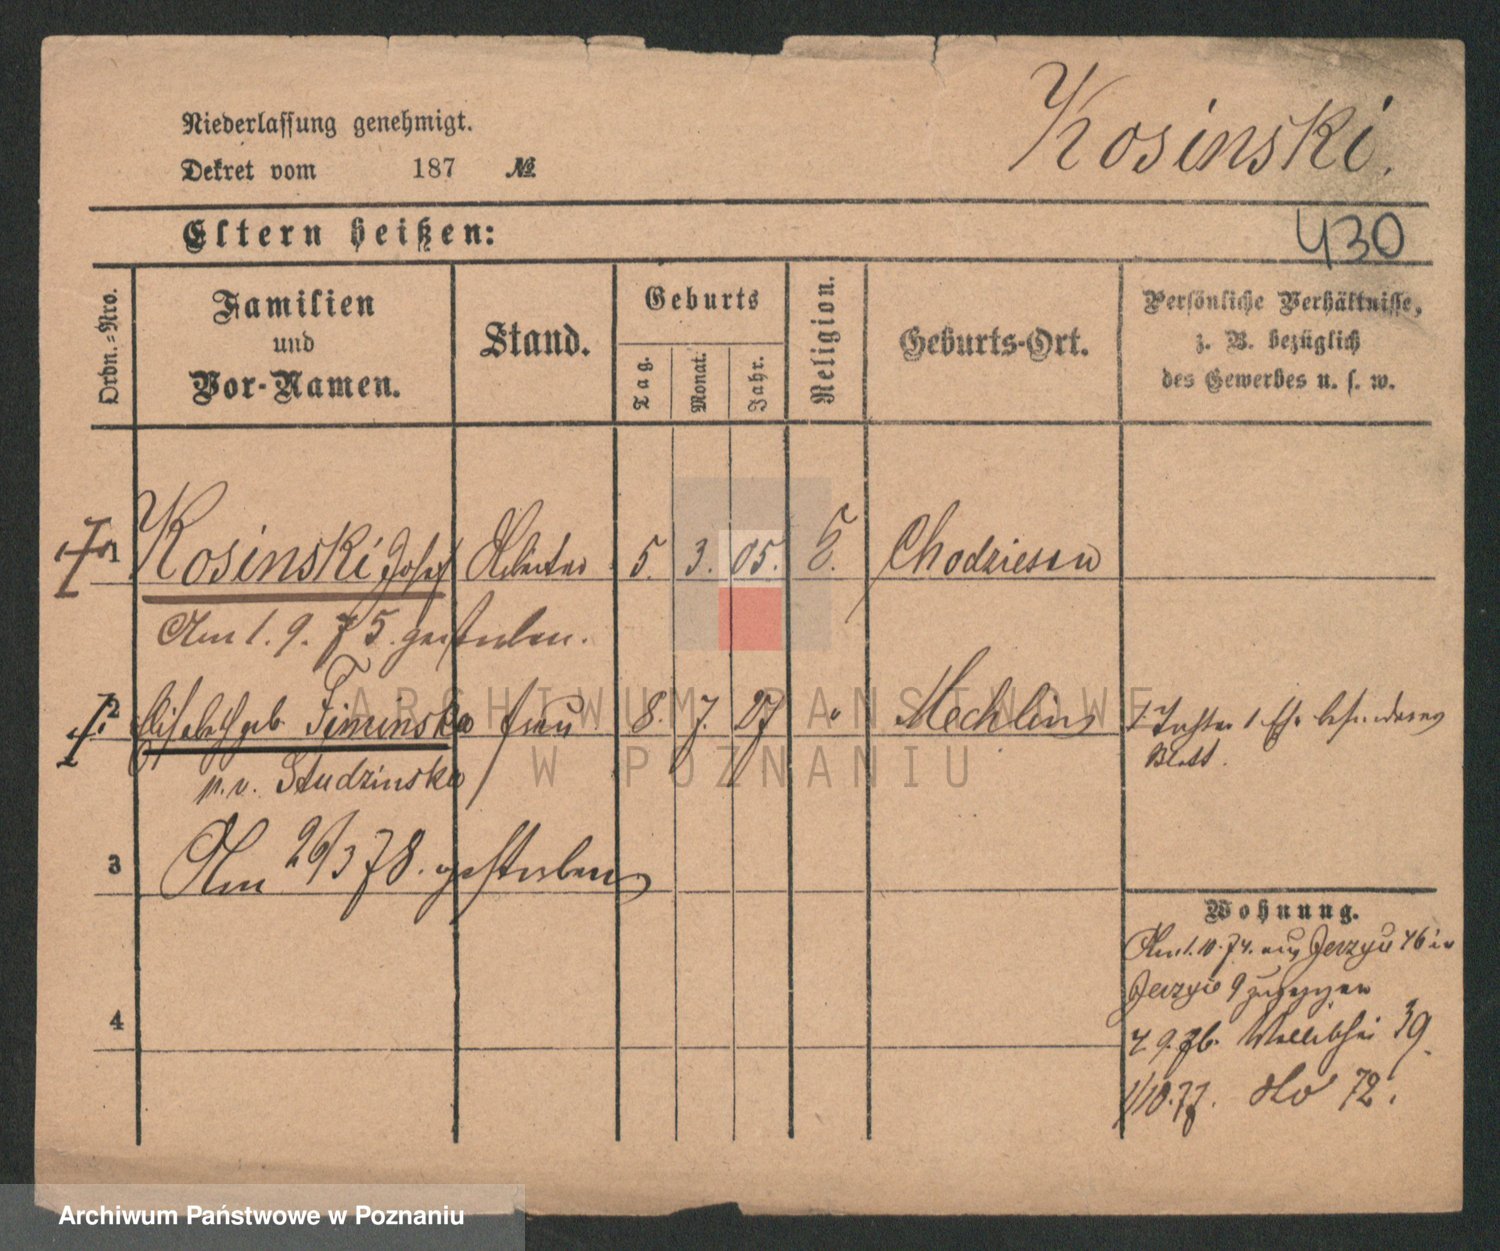 Kosinski.
Niederlassung genehmigt.
Dekret vom 187 №
430
Eltern heißen:
Ordn.-Nro.
Familien
und
Vor-Namen.
Stand.
Geburts
Tag.
Monat.
Jahr.
Religion.
Geburts-Ort.
Persönliche Verhältnisse,
z. B. bezüglich
des Gewerbes u. s. w.
1 Kosinski Josef Arbeiter 5. 3. 05. Chodziesen
Am 1. 9. 75. gestorben.
2 Elisabeth geb. Timinska frau 8. 7. 27 " Mechlin
Blatt.
p. v. Studzinska
3 Am 26/3 78. gestorben
4
Wohnung.
Am 1. 10. 74. aus Jerzyce 46 in
Jerzyce 9 zugezogen
4 9. 76. Wallischei 39.
1/10. 77. dto 72.
ARCHIWUM PAŃSTWOWE
W POZNANIU
Archiwum Państwowe w Poznaniu